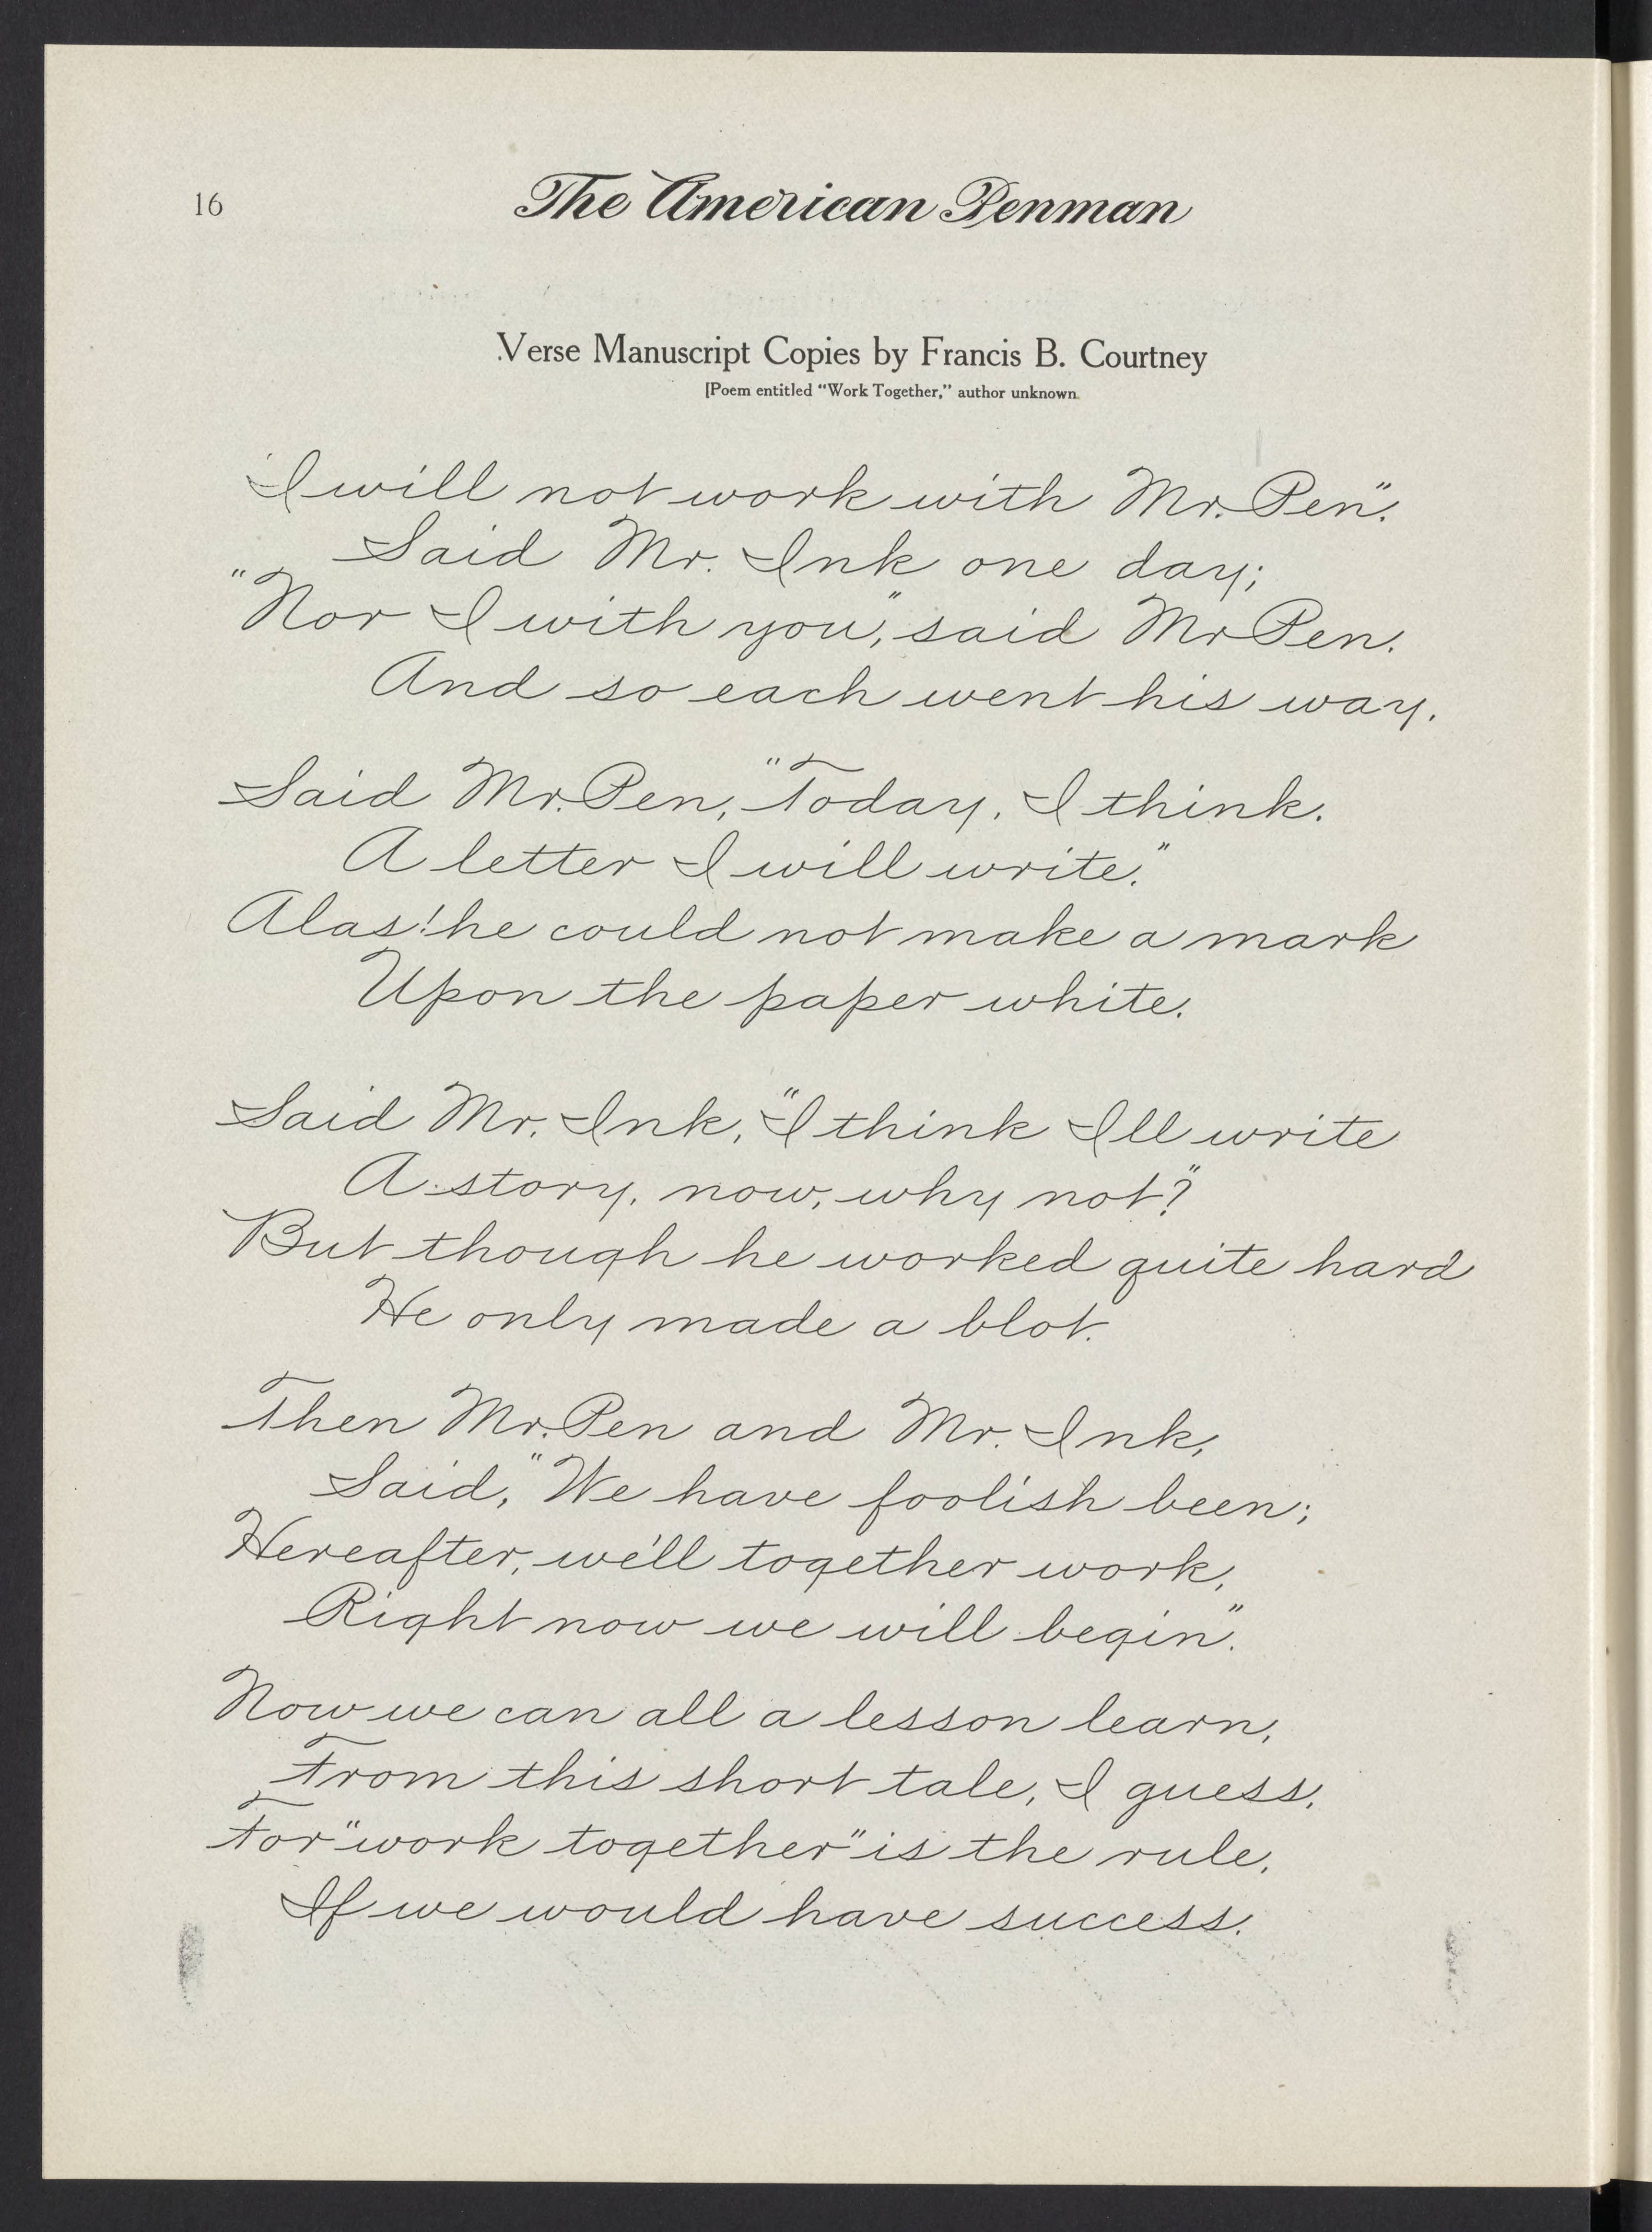 16
The American Penman
Verse Manuscript Copies by Francis B. Courtney
[Poem entitled "Work Together," author unknown.
"I will not work with Mr. Pen".
Said Mr. Ink one day;
"Nor I with you," said Mr Pen.
And so each went his way.
Said Mr. Pen, "Today, I think.
A letter I will write."
Alas! he could not make a mark
Upon the paper white.
Said Mr. Ink, "I think Ill write
A story, now, why not?"
But though he worked quite hard
He only made a blot.
Then Mr. Pen and Mr. Ink,
Said, "We have foolish been;
Hereafter, we'll together work,
Right now we will begin".
Now we can all a lesson learn,
From this short tale, I guess,
For "work together" is the rule,
If we would have success.